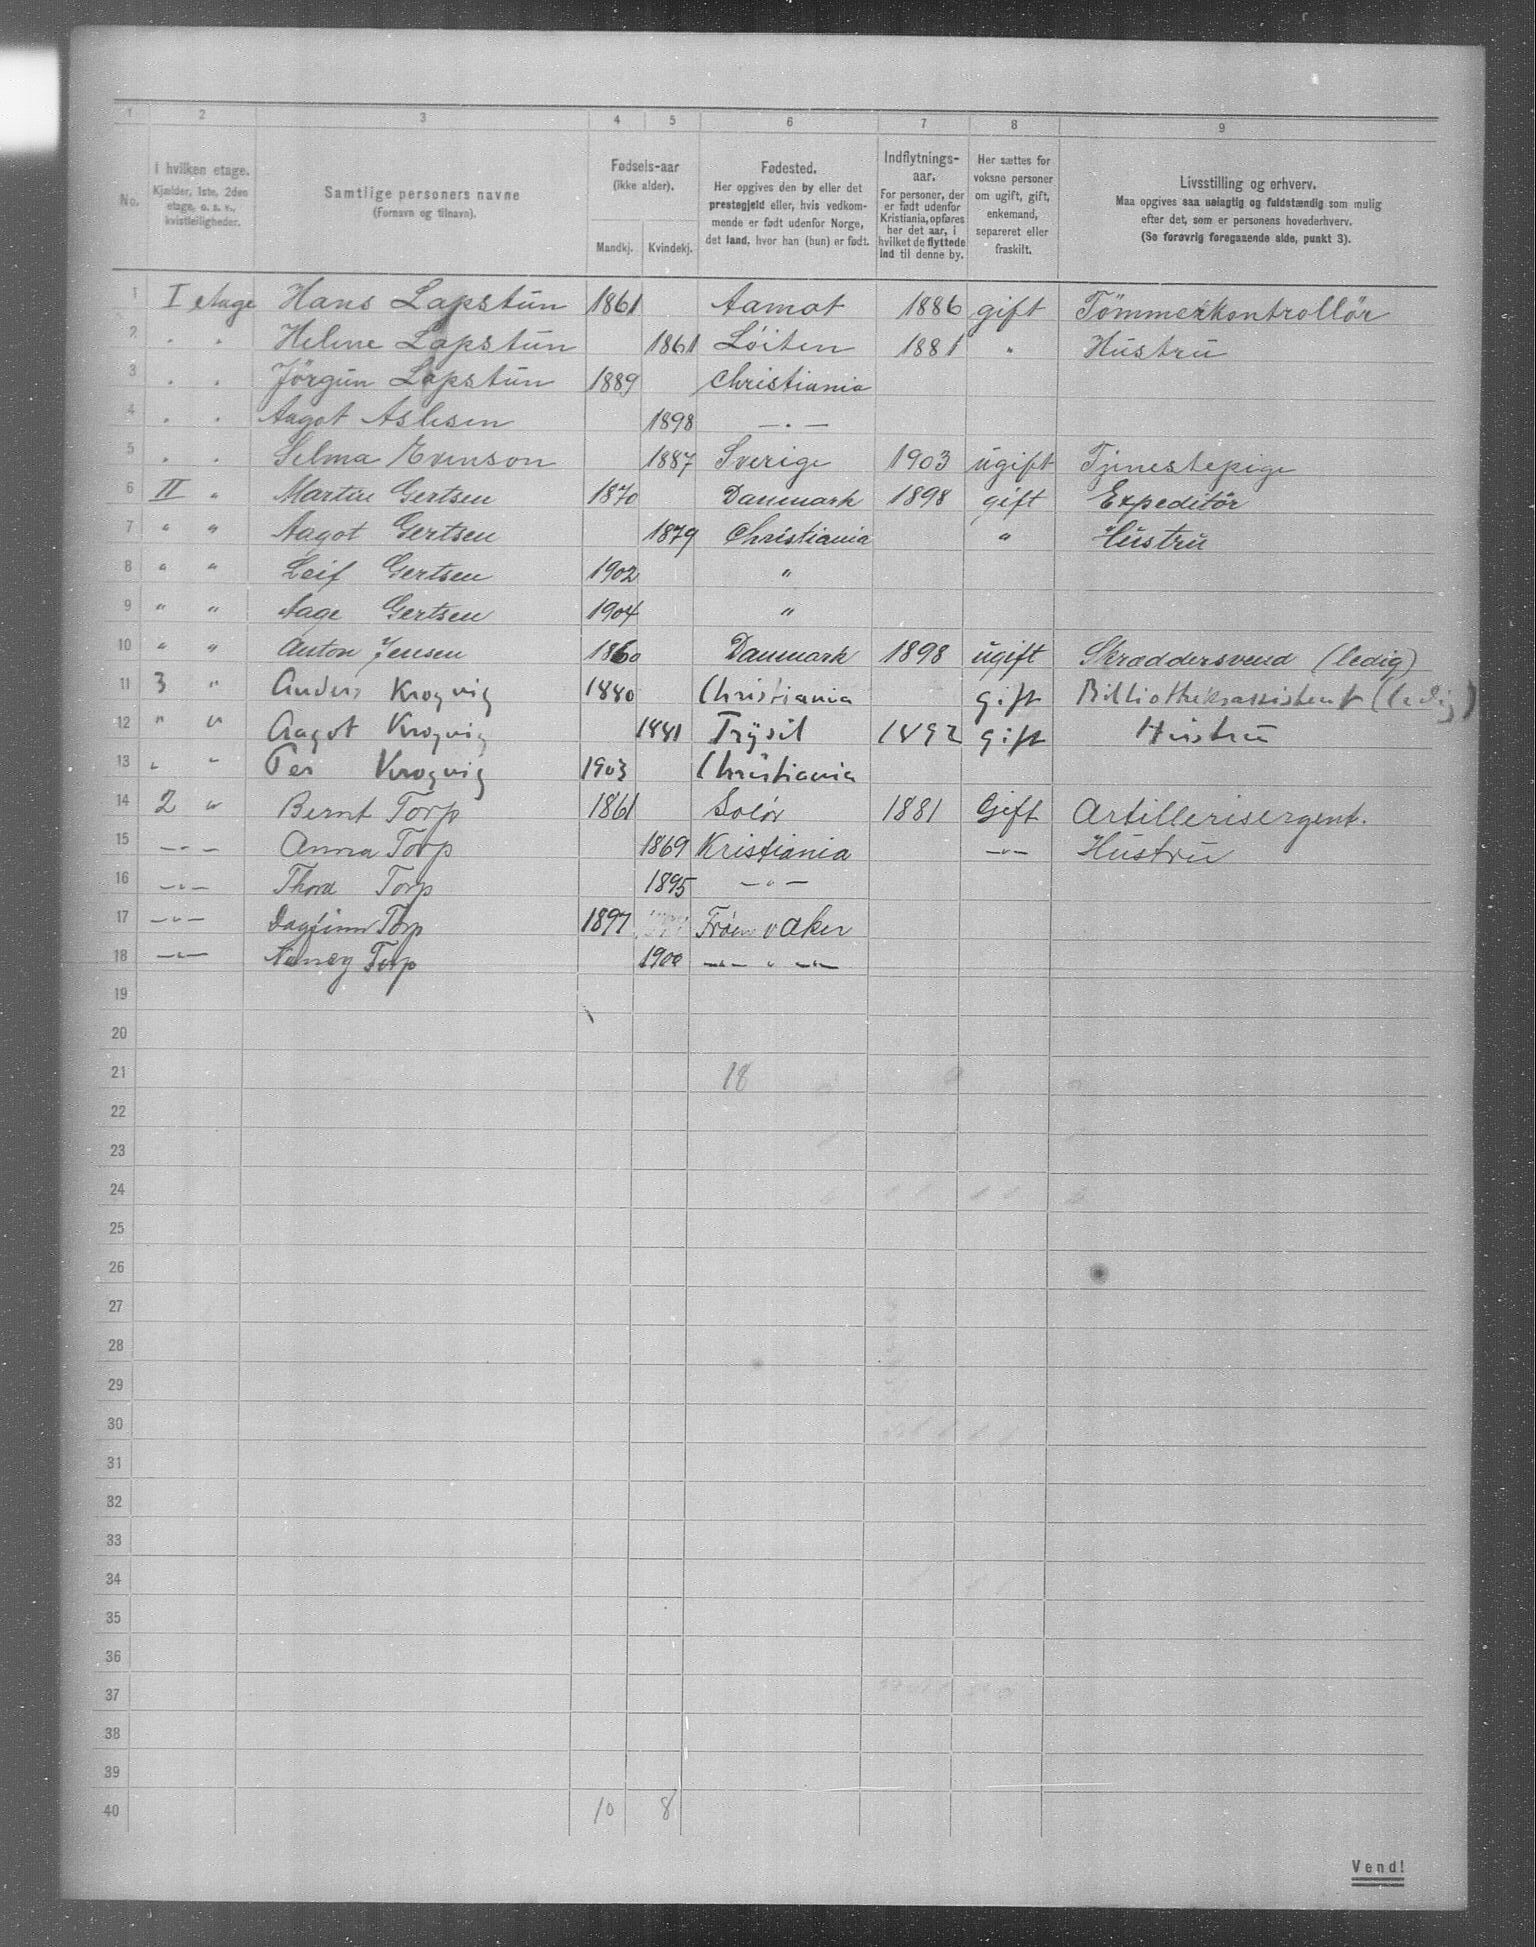 1 2 3 4 5 6 7 8 9
No. I hvilken etage. Kjælder, 1ste, 2den etage, o. s. v., kvistleiligheder.
Samtlige personers navne (Fornavn og tilnavn).
Fødsels-aar (ikke alder). Mandkj. Kvindekj.
Fødested. Her opgives den by eller det prestegjeld eller, hvis vedkommende er født udenfor Norge, det land, hvor han (hun) er født.
Indflytnings-aar. For personer, der er født udenfor Kristiania, opføres her det aar, i hvilket de flyttede ind til denne by.
Her sættes for voksne personer om ugift, gift, enkemand, separeret eller fraskilt.
Livsstilling og erhverv. Maa opgives saa nøiagtig og fuldstændig som mulig efter det, som er personens hovederhverv. (Se forøvrig foregaaende side, punkt 3).
1 I etage Hans Lapstun 1861 Aamot 1886 gift Tömmerkontrollör
2 " " Helene Lapstun 1861 Löiten 1881 " Hustru
3 " " Jörgun Lapstun 1889 Christiania
4 " " Aagot Aslesen 1898 — " —
5 " " Selma Evenson 1887 Sverige 1903 ugift Tjenestepige
6 II " Martin Gertsen 1870 Danmark 1898 gift Expeditör
7 " " Aagot Gertsen 1879 Christiania " Hustru
8 " " Leif Gertsen 1902 "
9 " " Aage Gertsen 1904 "
10 " " Anton Jensen 1860 Danmark 1898 ugift Skræddersvend (ledig)
11 3 " Anders Krogvig 1880 Christiania gift Bibliotheksassistent (ledig)
12 " " Aagot Krogvig 1881 Trysil 1892 gift Hustru
13 " " Per Krogvig 1903 Christiania
14 2 " Bernt Torp 1861 Solör 1881 Gift Artillerisergent.
15 — " — Anna Torp 1869 Kristiania — " — Hustru
16 — " — Thora Torp 1895 — " —
17 — " — Dagfinn Torp 1897 Fröen v Aker
18 — " — Nancy Torp 1900 — " —
19
20
21 18
22
23
24
25
26
27
28
29
30
31
32
33
34
35
36
37
38
39
40 10 8
Vend!